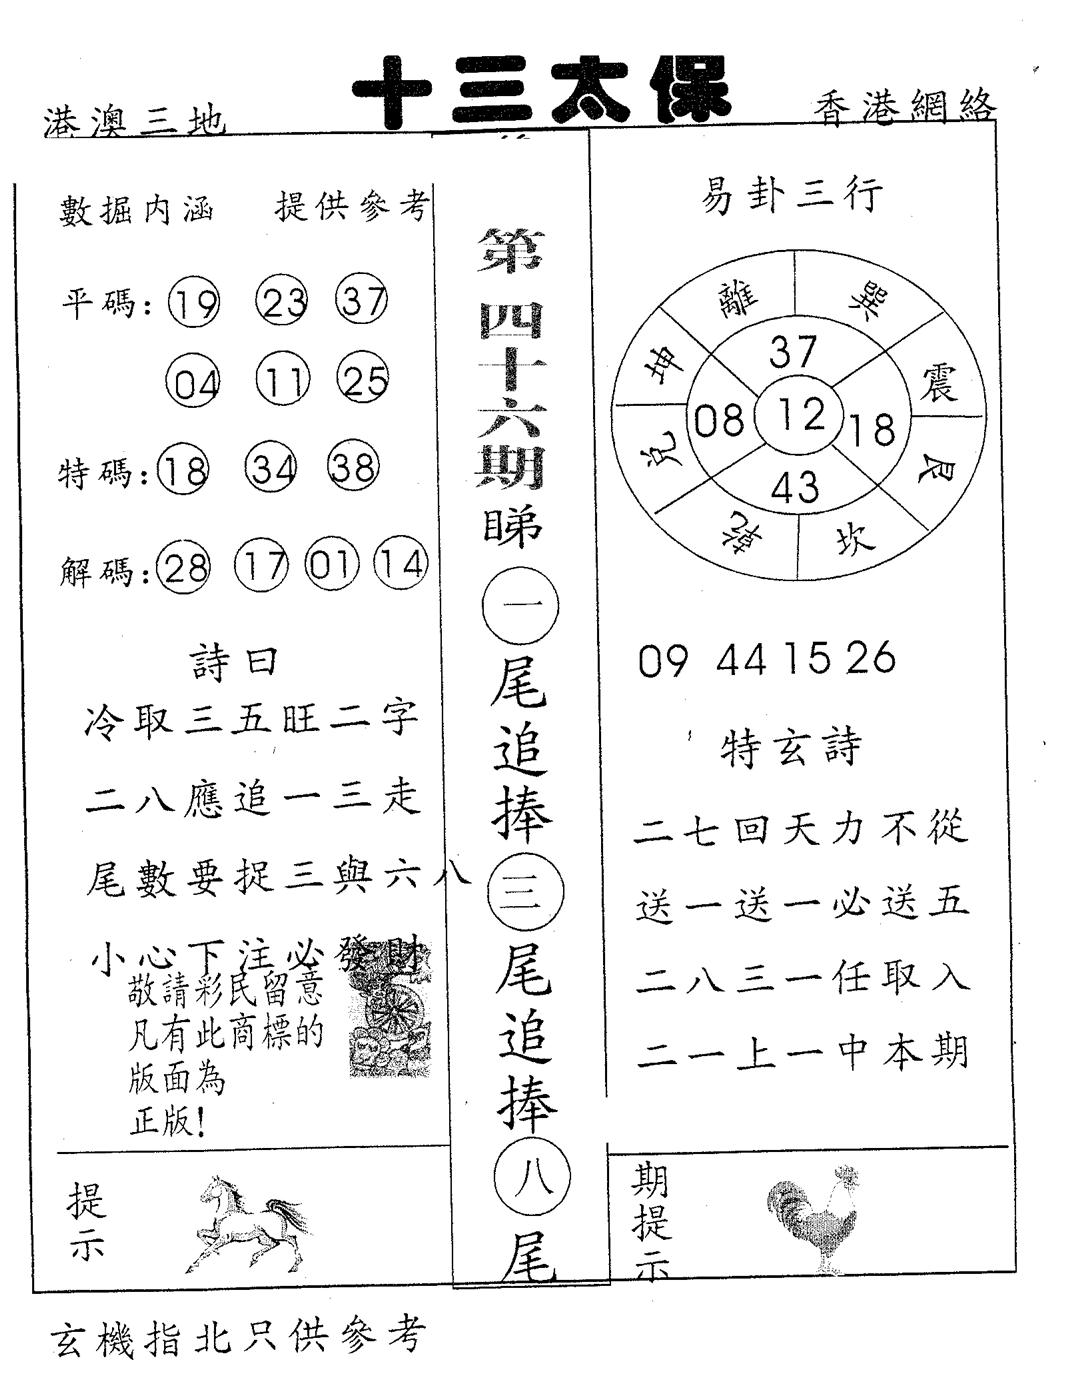 十三太保
港澳三地
香港網絡
數掘内涵 提供參考
平碼: 19 23 37
04 11 25
特碼: 18 34 38
解碼: 28 17 01 14
詩曰
冷取三五旺二字
二八應追一三走
尾數要捉三與六八
小心下注必發財
敬請彩民留意
凡有此商標的
版面為
正版!
提示
第四十六期睇一尾追捧三尾追捧八尾
易卦三行
離 巽
坤 震
兌 艮
乾 坎
37
08 12 18
43
09 44 15 26
特玄詩
二七回天力不從
送一送一必送五
二八三一任取入
二一上一中本期
期提示
玄機指北只供參考